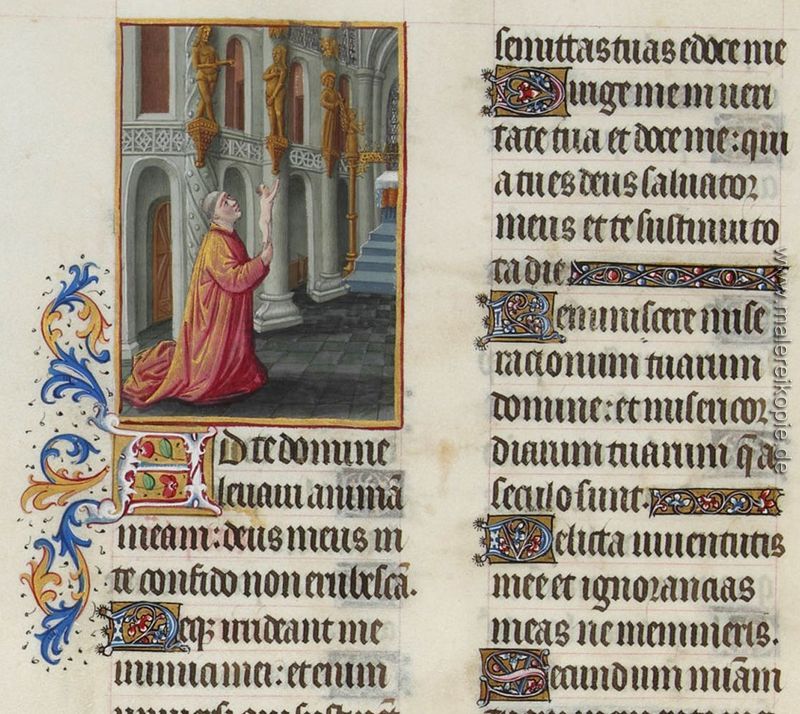 AD te domine
leuaui animã
meam: deus meus in
te confido non erubescã.
Neq; irideant me
inimici mei: etenim
semittas tuas edoce me
Dirige me in ueri
tate tua et doce me: qui
a tu es deus saluator
meus et te sustinui to
ta die
Reminiscere mise
racionum tuarum
domine: et misericor
diarum tuarum q̃ a
seculo sunt.
Delicta iuuentutis
mee et ignorancias
meas ne memineris.
Secundum miãm
www.malereikopie.de